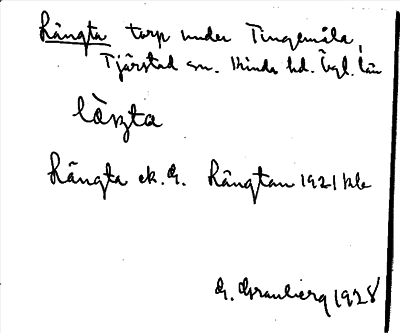 Långta torp under Tingemåla,
Tjärstad sn. Kinda hd. Ögl. län
lòŋta
Långta ek. G. Långtan 1921 kbr
G. Granberg 1928